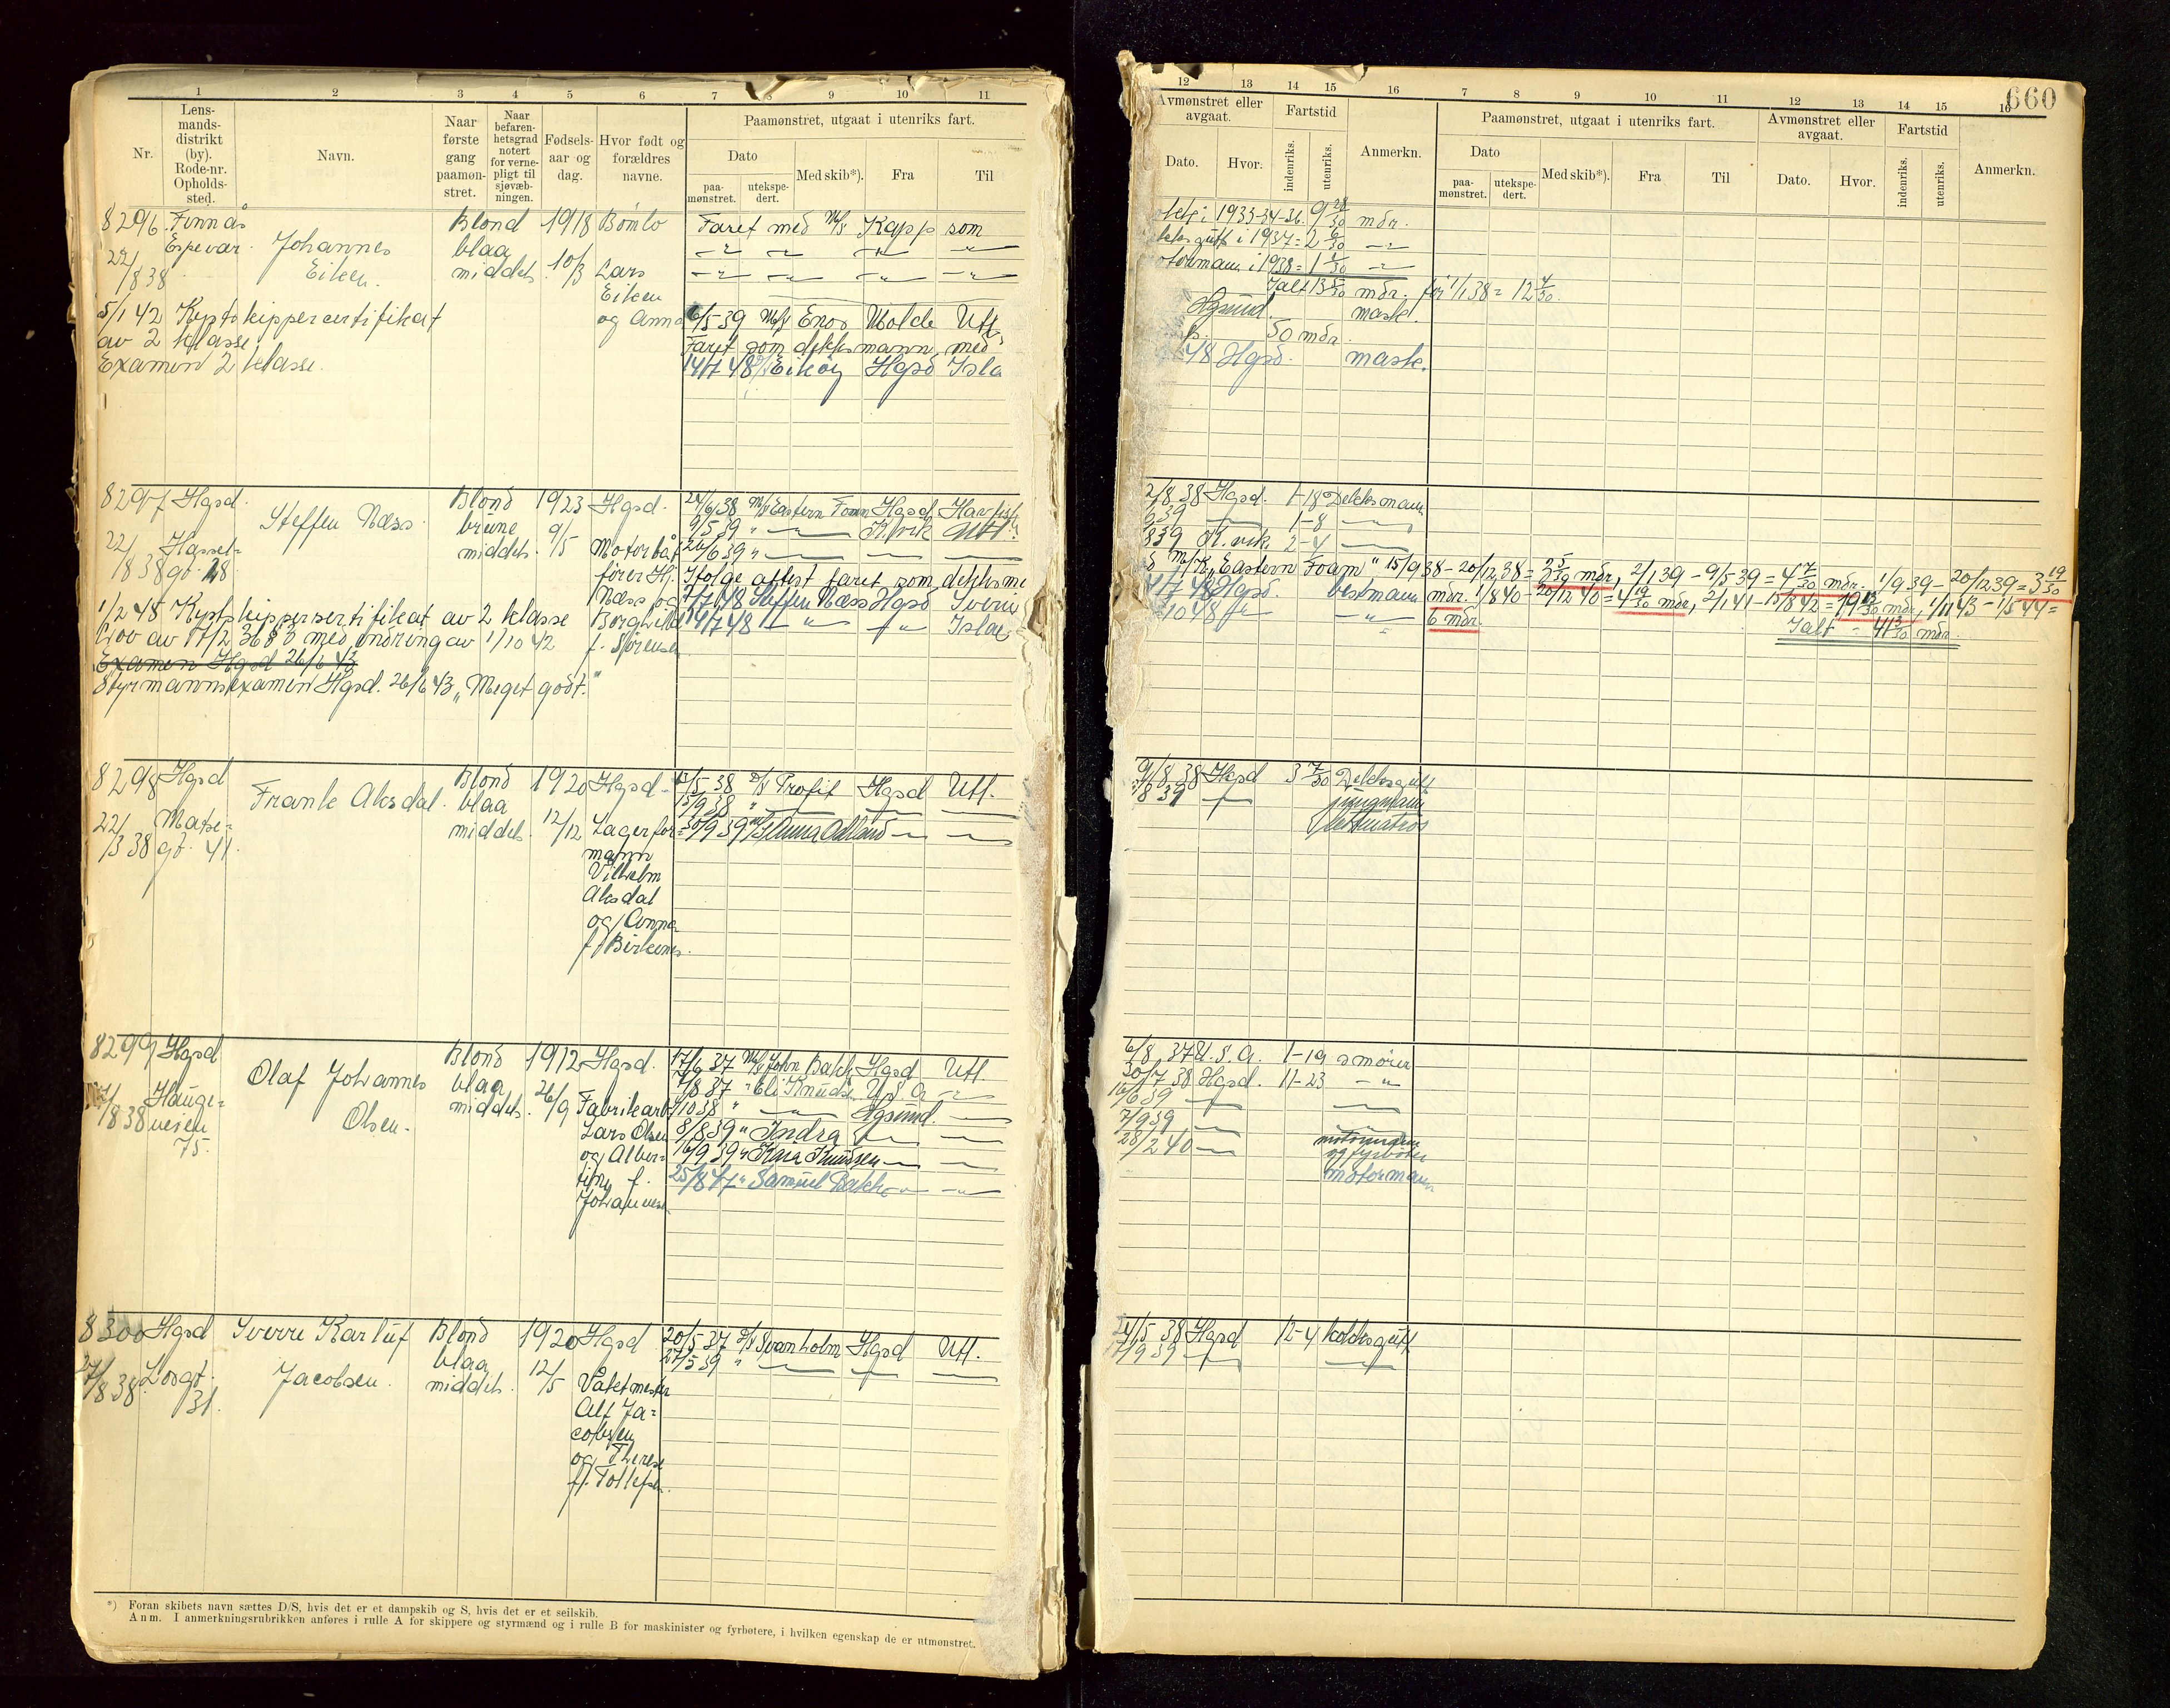 1 2 3 4 5 6 7 8 9 10 11
Nr.
Lens-
mands-
distrikt
(by).
Rode-nr.
Opholds-
sted.
Navn.
Naar
første
gang
paamøn-
stret.
Naar
befaren-
hetsgrad
notert
for verne-
pligt til
sjøvæb-
ningen.
Fødsels-
aar og
dag.
Hvor født og
forældres
navne.
Paamønstret, utgaat i utenriks fart.
Dato
paa-
mønstret.
utekspe-
dert.
Med skib*).
Fra
Til
8296 Finnås Blond 1918 Bömlo Faret med M/s Kapp som
Espevær. Johannes blaa
22/ middels. 10/3 Lars
/8 38 Eiken.
Eiken
5/1 42 Kystskippercertifikat og Anna 6/5 39 M/s Enos Molde Utl.
av 2 klasse, Faret som dekksmann med
Examen 2 klasse. 14/7 48 Eiköy Hgsd Isla
8297 Hgsd. Steffen Næss. Blond 1923 Hgsd. 24/6 38 M/s Eastern Foam Hgsd
brune 9/5 39 " K.vik Utl.
22/ Hassel- middels. 9/5 Motorbåt 24/6 39 "
/8 38 gt. 48. fører Hj. Ifølge attest faret som dekksme
Næss og 7/7 48 Steffen Næss Hgsd Sveri
1/2 48 Kystskippersertifikat av 2 klasse Borghild 14/7 48 " " Isla
Lov av 17/2 36 § 3 med endring av 1/10 42 f. Sørensen
Examen Hgsd 26/6 43
Styrmannsexamen Hgsd. 26/6 43 „Meget godt."
8298 Hgsd Frank Aksdal. Blond 1920 Hgsd. /5 38 D/s Profit Hgsd Utl.
blaa 15/9 38 "
22/ Matse- middels. 12/12 Lagerfor- 30/9 39 Anna Odland
/3 38 gt. 41. mann
Vilhelm
Aksdal
og Anna
f. Birkenes.
8299 Hgsd Olaf Johannes Blond 1912 Hgsd. 17/6 37 M/s John Bakke Hgsd Utl.
blaa 7/8 37 " Eli Knudsen U.S.A
Hauge- middels. 26/9 Fabrikarb. /10 38 " Egersund.
/8 38 vesen Olsen. Lars Olsen 8/8 39 " Indra
75. og Alber- 16/9 39 " Kara Knudsen
tine f. 25/8 47 " Samuel Bakke
Johannesen
8300 Hgsd Sverre Karluf Blond 1920 Hgsd 20/5 37 D/s Svanholm Hgsd Utl.
blaa 27/5 39 "
27/8 38. Losgt. Jacobsen. middels. 12/5 Vaktmester
31. Alf Ja-
cobsen
og Therese
f. Tollefsen.
*) Foran skibets navn sættes D/S, hvis det er et dampskib og S, hvis det er et seilskib.
Anm. I anmerkningsrubrikken anføres i rulle A for skippere og styrmænd og i rulle B for maskinister og fyrbøtere, i hvilken egenskap de er utmønstret.
660
12 13 14 15 16 7 8 9 10 11 12 13 14 15 16
Avmønstret eller
avgaat.
Dato.
Hvor.
Fartstid
indenriks.
utenriks.
Anmerkn.
Paamønstret, utgaat i utenriks fart.
Dato
paa-
mønstret.
utekspe-
dert.
Med skib*).
Fra
Til
Avmønstret eller
avgaat.
Dato.
Hvor.
Fartstid
indenriks.
utenriks.
Anmerkn.
i 1933-34-36. 9 28/30 mdr.
gutt i 1937 = 2 6/30
motormann i 1938 = 1 1/30
Ialt 13 5/30 mdr. før 1/1 38 = 12 4/30.
Egersund. mask.
50 mdr.
48 Hgsd. mask.
2/8 38 Hgsd. 1-18 Dekksmann
39 1-8
8 39 K.vik. 2-4
M/K „Eastern Foam" 15/9 38 - 20/12 38 = 3 5/30 mdr, 2/1 39 - 9/5 39 = 4 7/30 mdr. 1/9 39 - 20/12 39 = 3 19/30
7 48 Hgsd. bestmann mdr. 1/8 40 - 20/12 40 = 4 19/30 mdr, 2/1 41 - 15/8 42 = 19 13/30 mdr, 1/11 43 - 1/5 44 =
10 48 6 mdr.
Ialt = 41 3/30 mdr.
9/8 38 Hgsd 3 7/30 Dekksgutt
8 39 jungmann
lettmatros
6/8 37 U.S.A. 1-19 smører
30/7 38 Hgsd. 11-23
16/6 39
7/9 39
28/2 40 motormann
og fyrbøter
motormann
24/5 38 Hgsd 12-4 kokksgutt
7/9 39